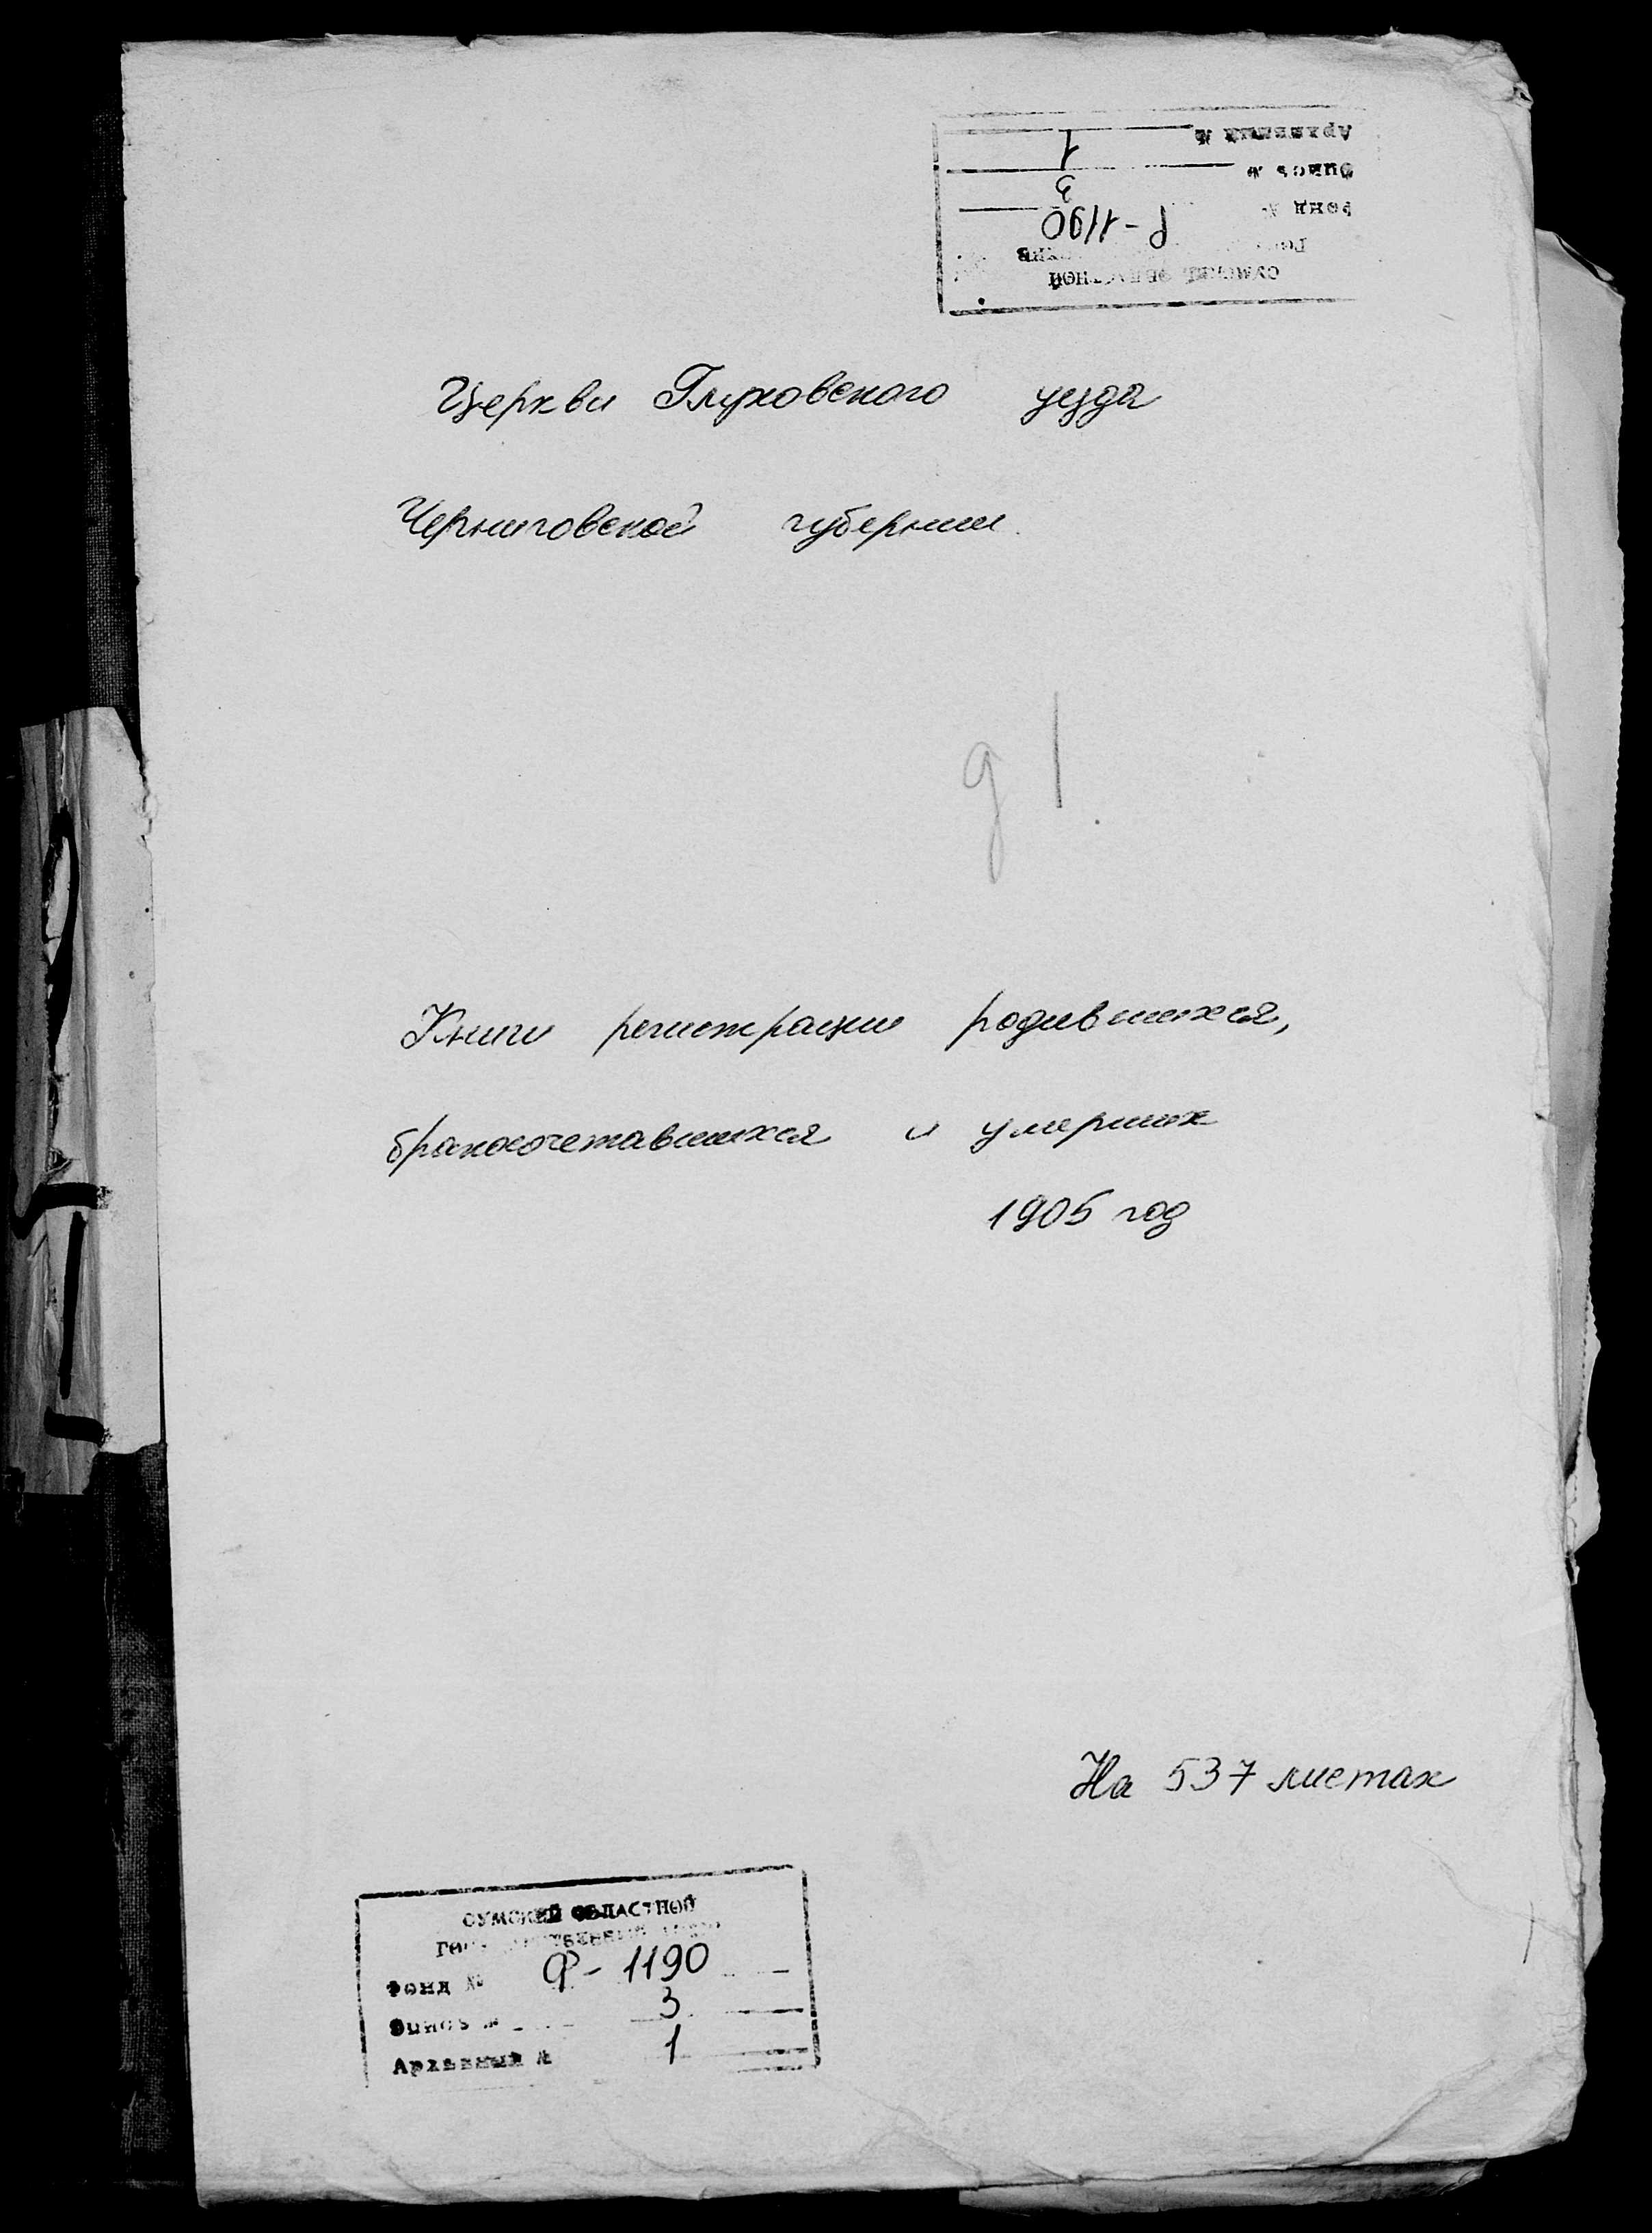 СУМСКИЙ ОБЛАСТНОЙ
Фонд № Р-1190
Опись № 3
Архивный № 1
Церкви Глуховского уезда
Черниговской губернии.
д 1.
Книги регистрации родившихся,
бракосочетавшихся и умерших
1905 год
На 537 листах
СУМСКИЙ ОБЛАСТНОЙ
ГОСУДАРСТВЕННЫЙ АРХИВ
Фонд № Ф-1190
Опись № 3
Архивный № 1